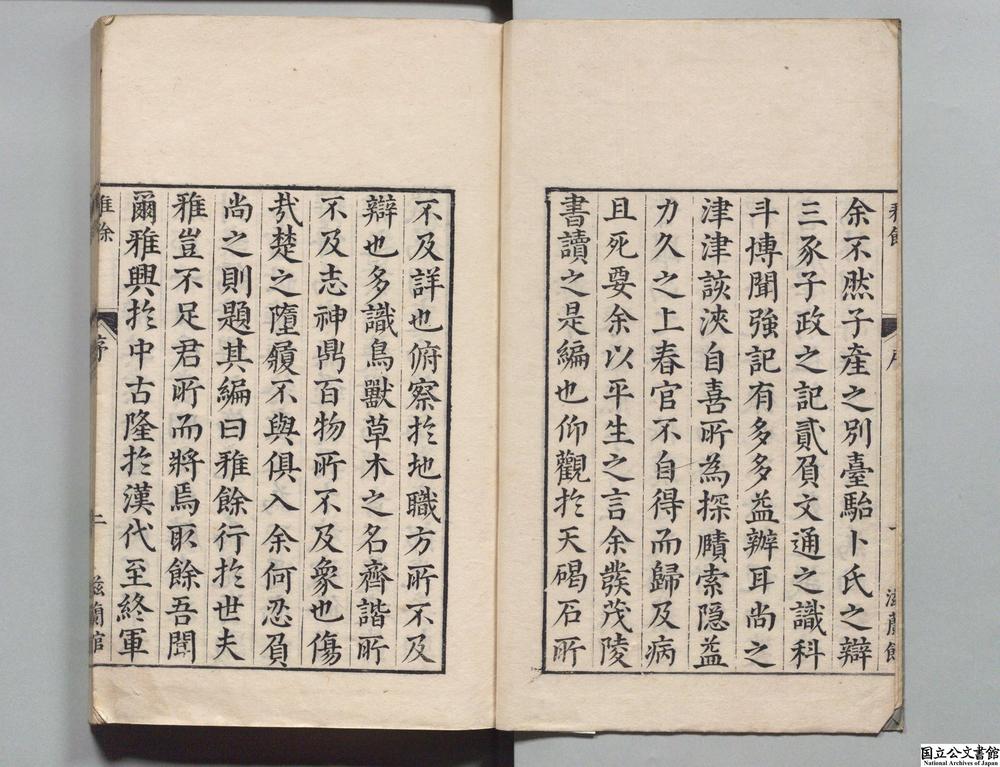 余不然子產之別臺駘卜氏之辯
三豕子政之記貳負文通之識科
斗博聞強記有多多益辦耳尚之
津津該浹自喜所為探賾索隱益
力久之上春官不自得而歸及病
且死要余以平生之言余發茂陵
書讀之是編也仰觀於天碣石所
不及詳也俯察於地職方所不及
辯也多識鳥獸草木之名齊諧所
不及志神鼎百物所不及象也傷
哉楚之墮履不與俱入余何忍負
尚之則題其編曰雅餘行於世夫
雅豈不足君所而將焉取餘吾聞
爾雅興於中古隆於漢代至終軍
雅餘
序
二
滋蘭館
国立公文書館
National Archives of Japan